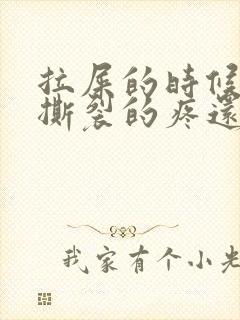 拉屎的時候
撕裂的疼還
我家有个小